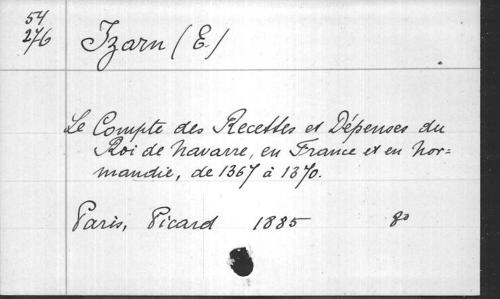 54
276
Izarn (E.)
Le Compte des Recettes et Dépenses du
Roi de Navarre, en France et en Nor=
mandie, de 1367 à 1370.
Paris, Picard 1885 8o